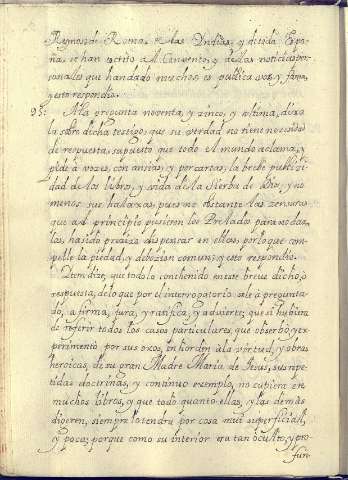 Reymonde Roma, de las Yndias, y de toda Espa-
ña, se han escrito a el Convento, y de las noticias per-
sonales que han dado muchos es publica voz y fama,
y esto respondio.
95: A la pregunta noventa, y cinco, y vltima, dixo
la sobre dicha testigo, que su verdad no tiene necesidad
de respuesta, supuesto que todo el mundo aclama, y
pide a voces, con ansias, y por cartas, la brebe publici-
dad de los libros, y vida de la Sierba de Dios, y no
menos sus alaxas, pues no obstante las zensuras
que a el principio pusieron los Prelados para no dar
las, ha sido preziso dispensar en ellas, por lo que com-
pelle la piedad, y deboçion comun; y esto respondio.
Ytem dize, que todo lo contenido en este breve dicho, o
respuesta, de lo que por el interrogatorio se le a pregunta-
do, a firma, jura, y ratifica, y advierte, que si hubiera
de referir todos los casos particulares que obserbò, y ex-
perimentò por sus oxos, en horden à la virtud, y obras
heroicas, de su gran Madre Maria de Jesus, sus repe-
tidas doctrinas, y continuo exemplo, no cupiera en
muchos libros, y que todo quanto ella, y las demàs
dixeren, siempre lo tendrà por cosa muy superficial,
y poca; porque como su interior era tan oculto, y pro-
fun-